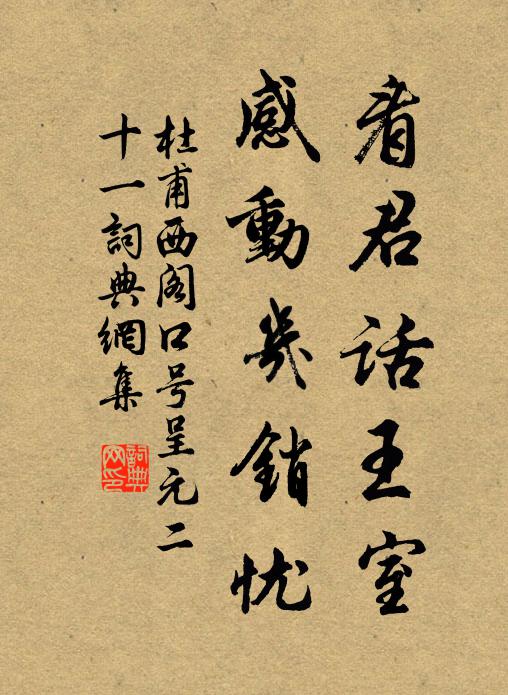 看君话王室
感動幾銷忧
杜甫西阁口号呈元二
十一詞典網集
詞典网印